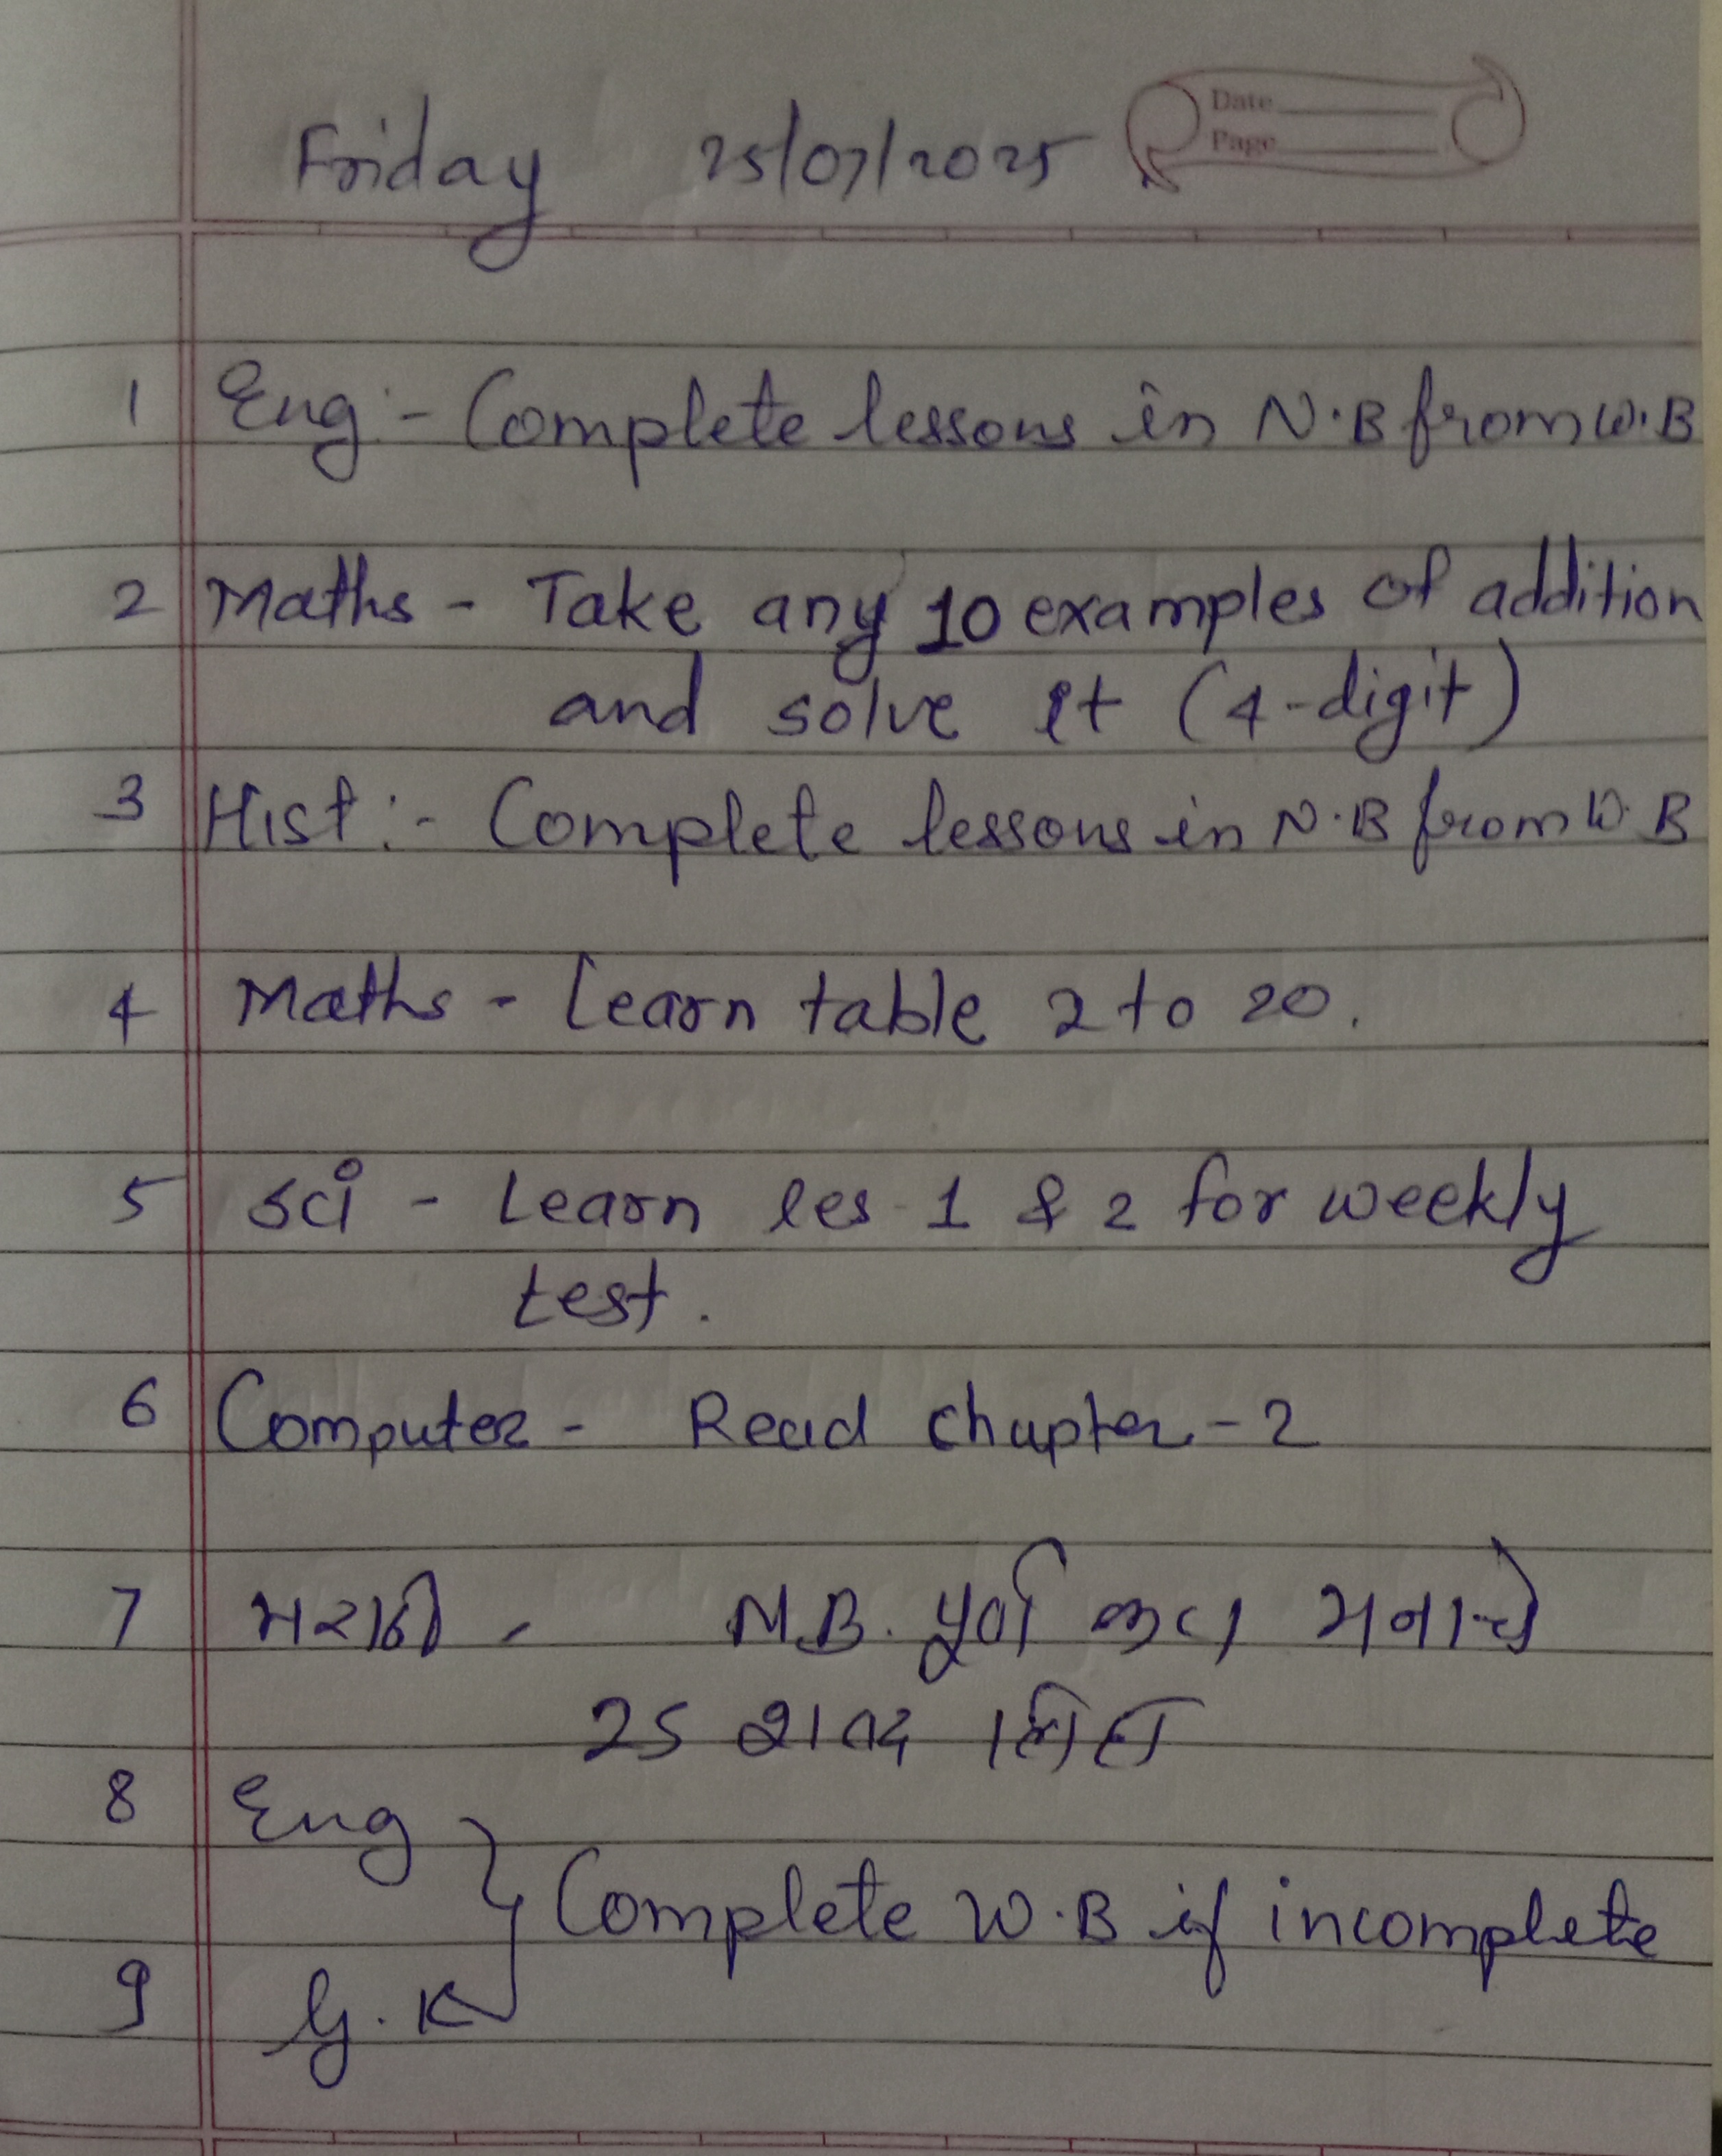 Date
Page
Friday 25/07/2025
1 Eng :- Complete lessons in N.B from W.B
2 Maths - Take any 10 examples of addition
and solve it (4-digit)
3 Hist :- Complete lessons in N.B from W.B
4 Maths - Learn table 2 to 20.
5 Sci - Learn les - 1 & 2 for weekly
test.
6 Computer - Read chapter - 2
7 मराठी - N.B. पूर्ण करा मनाचे
25 शब्द लिहा
8 Eng
Complete W.B if incomplete
9 G.K